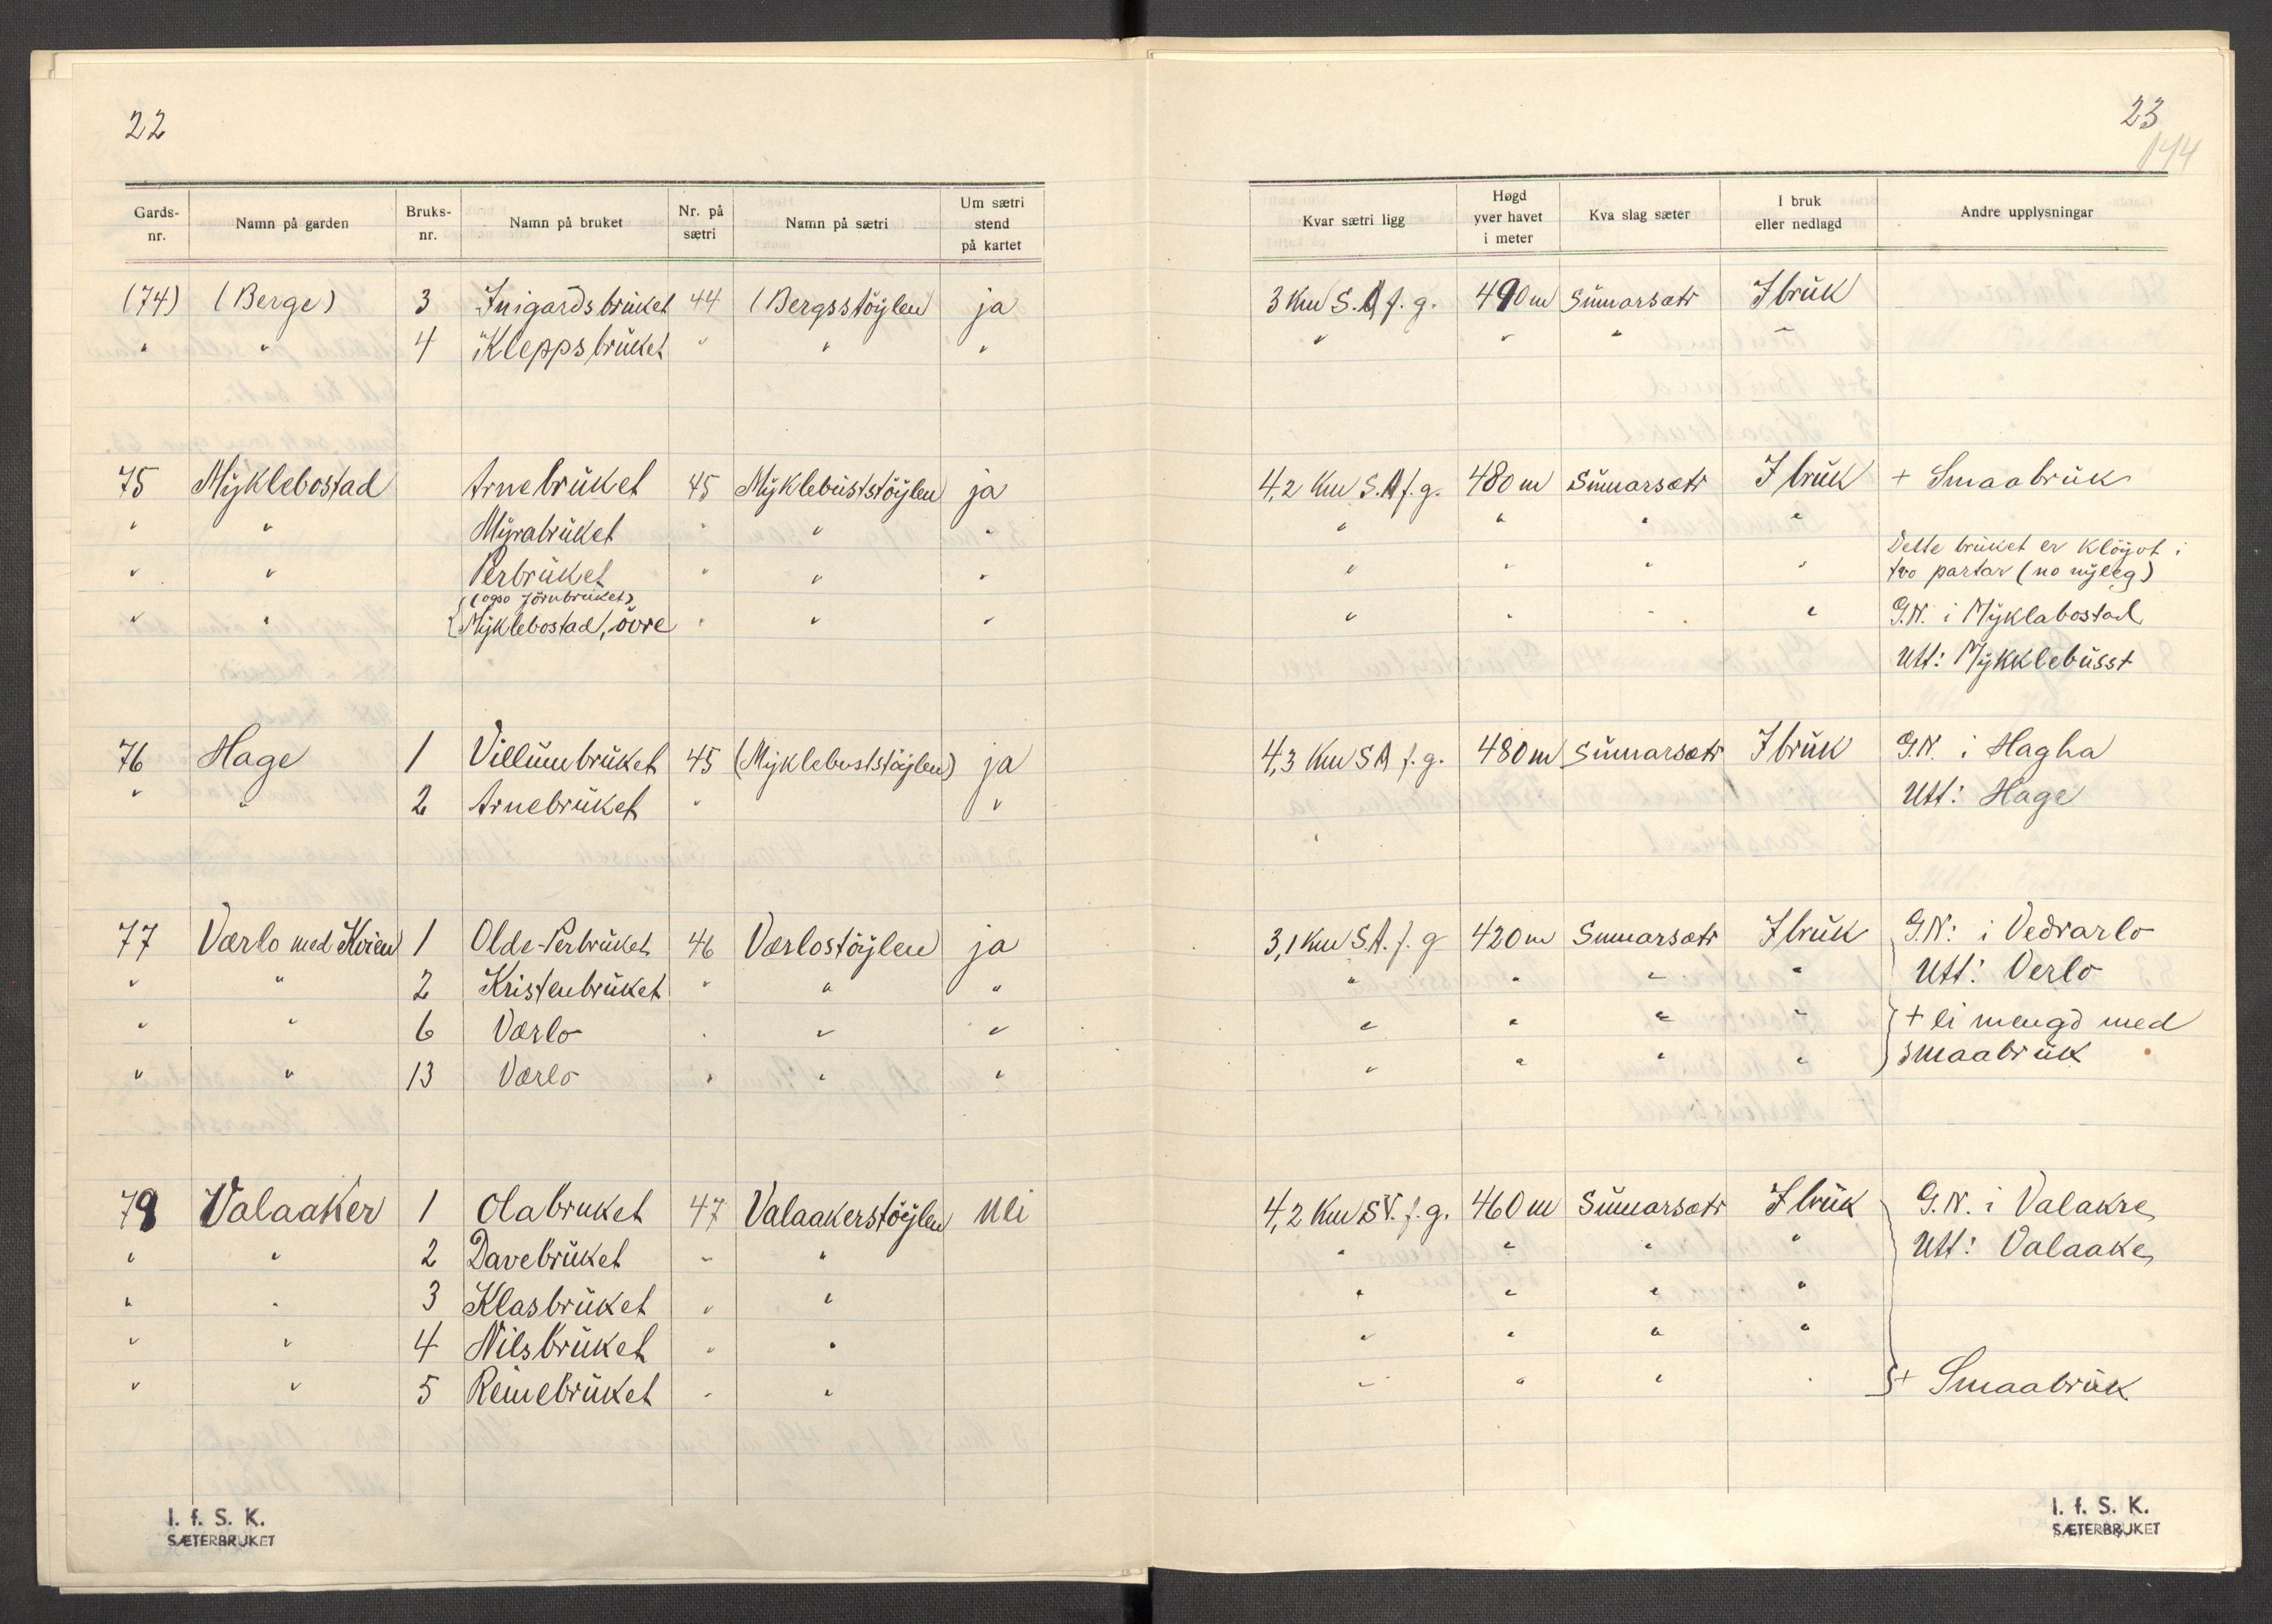 22
Gards-nr. Namn på garden Bruks-nr. Namn på bruket Nr. på sætri Namn på sætri Um sætri stend på kartet
(74) (Berge) 3 Inigardsbrüket 44 (Bergsstöylen) ja
" " 4 Kleppsbrüket " " "
75 Myklebostad Arnebrüket 45 Myklebüststöylen ja
" " Myrabrüket " " "
" " Perbrüket " " "
(ogso Jörnbrüket)
" " Myklebostad, övre " " "
76 Hage 1 Villümbrüket 45 (Myklebuststöylen) ja
" " 2 Arnebrüket " "
77 Værlo med Kvien 1 Olde-Perbrüket 46 Værlostöylen ja
" " 2 Kristenbrüket " " "
" " 6 Værlo " " "
" " 13 Værlo " " "
78 Valaaker 1 Olabruket 47 Valaakerstöylen nei
" " 2 Davebrüket " "
" " 3 Klasbrüket " "
" " 4 Nilsbrüket " "
" " 5 Reinebrüket " "
I. f. S. K.
SÆTERBRUKET
23
144
Kvar sætri ligg Høgd yver havet i meter Kva slag sæter I bruk eller nedlagd Andre upplysningar
3 Km S.A f. g. 490 m Sümarsætr I brük
" " " "
4,2 Km S.A f. g. 480 m Sümarsætr I brük + Smaabrük
" " " "
Dette brüket er klöyvt i
" " " " tvo partar (no nyleg)
" " " " G.N. i Myklabostad
Utt: Mykklebüsst
4,3 Km SA f. g. 480 m Sümarsætr I brük G.N. i Hagha
Utt: Hage
3,1 Km S.A. f. g 420 m Sumarsætr I brük G.N: i Vedrarlo
" " " " Utt: Verlo
" " " " + ei mengd med
" " " " smaabrük
4,2 Km SV. f. g. 460 m Sümarsætr I brük G.N. i Valakre
" " " " Utt: Valaake
" " " "
" " " "
" " " " + Smaabrük
I. f. S. K.
SÆTERBRUKET